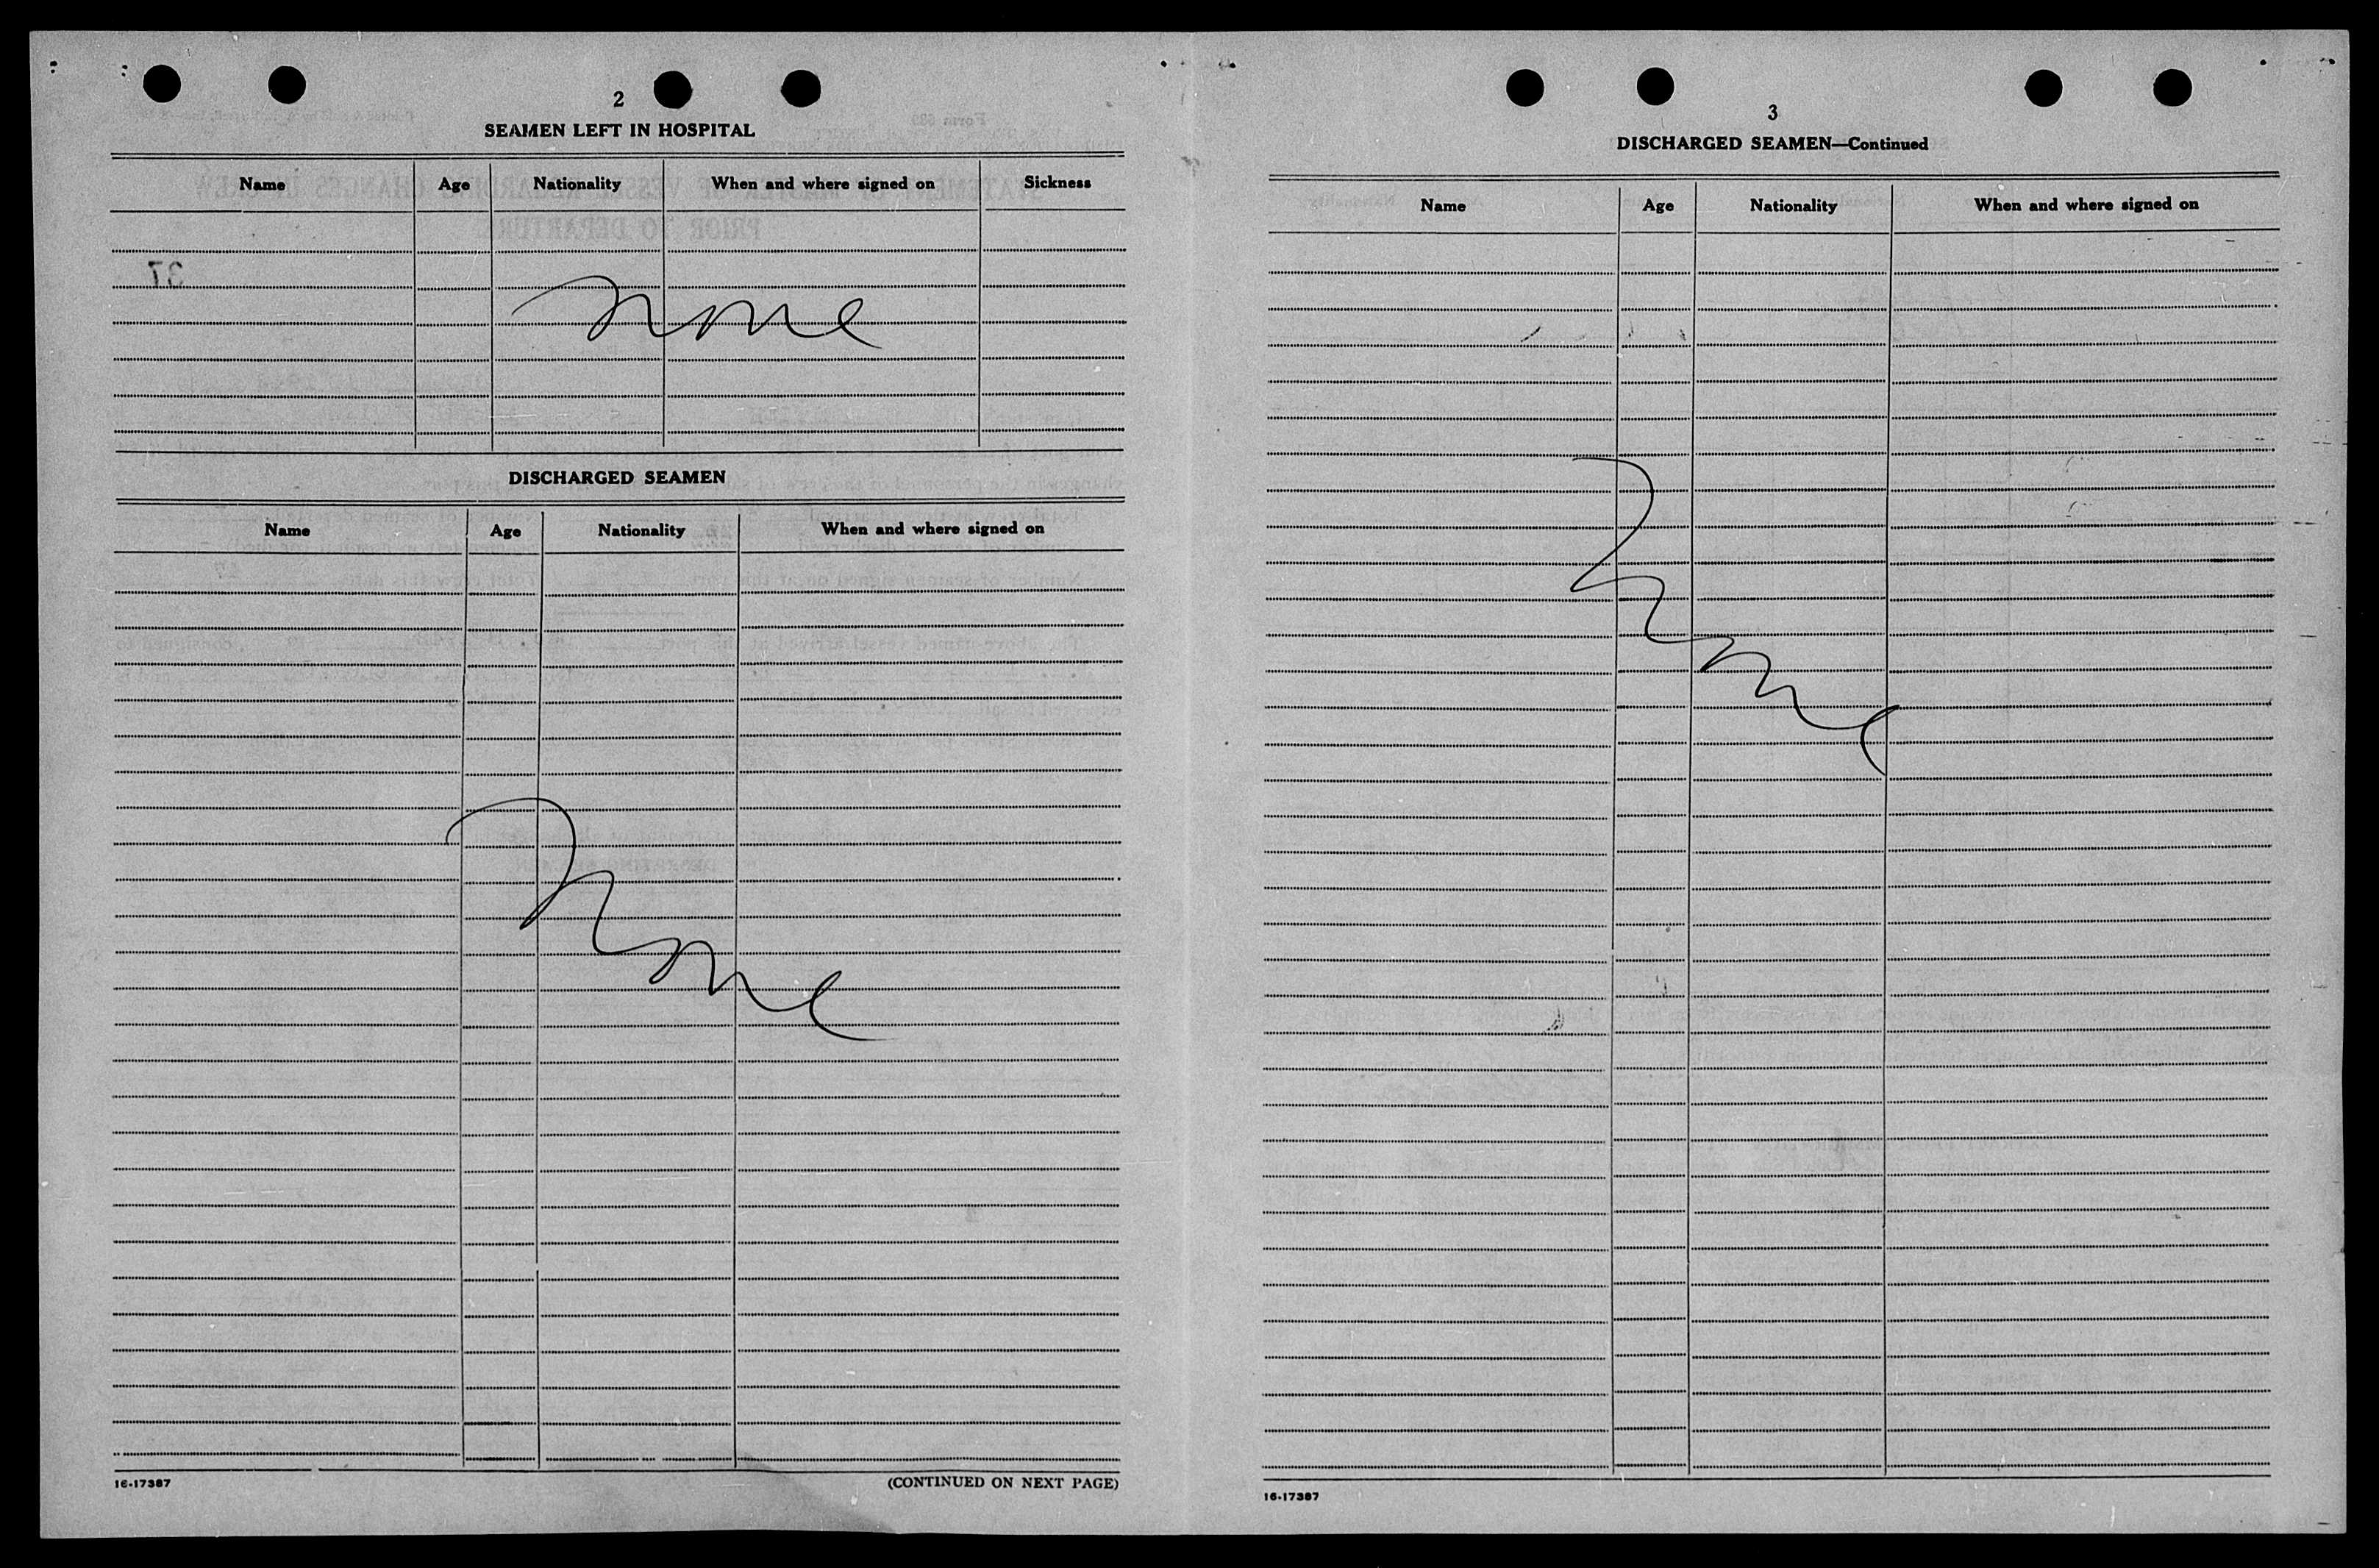 2
SEAMEN LEFT IN HOSPITAL
Name Age Nationality When and where signed on Sickness
37
None
DISCHARGED SEAMEN
Name Age Nationality When and where signed on
None
16-17387 (CONTINUED ON NEXT PAGE)
3
DISCHARGED SEAMEN—Continued
Name Age Nationality When and where signed on
None
16-17387